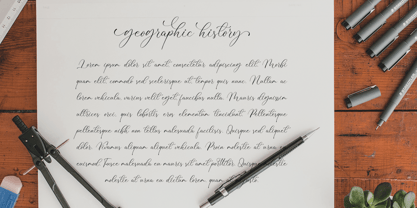 geographic history
Lorem ipsum dolor sit amet, consectetur adipiscing elit. Morbi
quam elit, commodo sed scelerisque ut, tempor quis nunc. Nullam ac
lorem vehicula, varius velit eget, faucibus nulla. Mauris dignissim
ultrices orci, quis lobortis eros elementum tincidunt. Pellentesque
pellentesque nibh non tellus malesuada facilisis. Quisque sed aliquet
dolor. Vivamus aliquam aliquet vehicula. Proin molestie at urna
euismod. Fusce malesuada ex mauris sit amet porttitor. Quisque
molestie at urna eu dictum lorem, quam